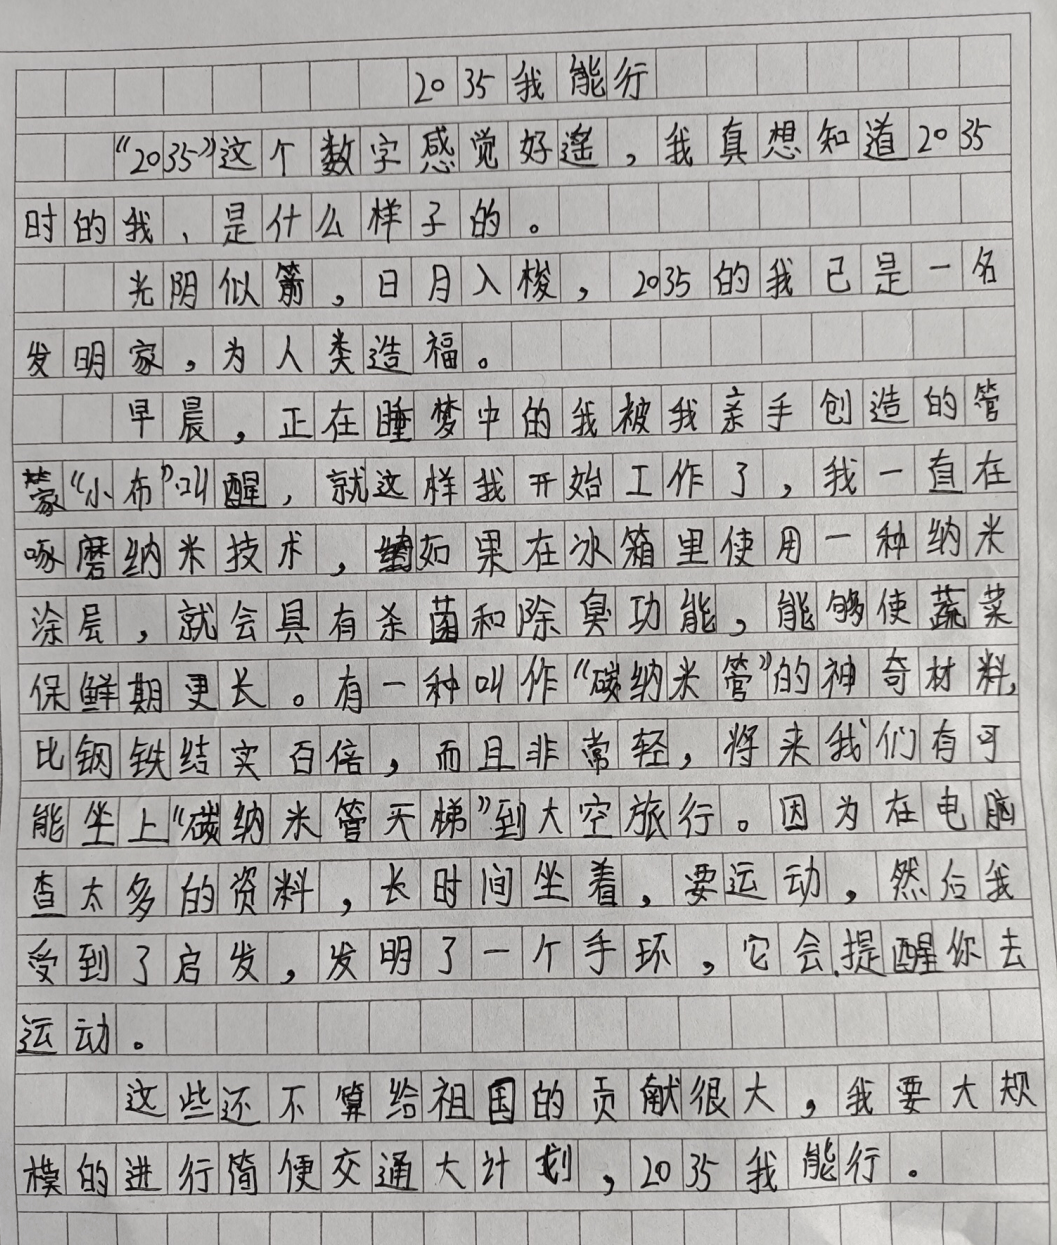 2035我能行
“2035”这个数字感觉好遥，我真想知道2035
时的我、是什么样子的。
光阴似箭，日月入梭，2035的我已是一名
发明家，为人类造福。
早晨，正在睡梦中的我被我亲手创造的管
家“小布”叫醒，就这样我开始工作了，我一直在
啄磨纳米技术，如果在冰箱里使用一种纳米
涂层，就会具有杀菌和除臭功能，能够使蔬菜
保鲜期更长。有一种叫作“碳纳米管”的神奇材料，
比钢铁结实百倍，而且非常轻，将来我们有可
能坐上“碳纳米管天梯”到大空旅行。因为在电脑
查太多的资料，长时间坐着，要运动，然后我
受到了启发，发明了一个手环，它会提醒你去
运动。
这些还不算给祖国的贡献很大，我要大规
模的进行简便交通大计划，2035我能行。